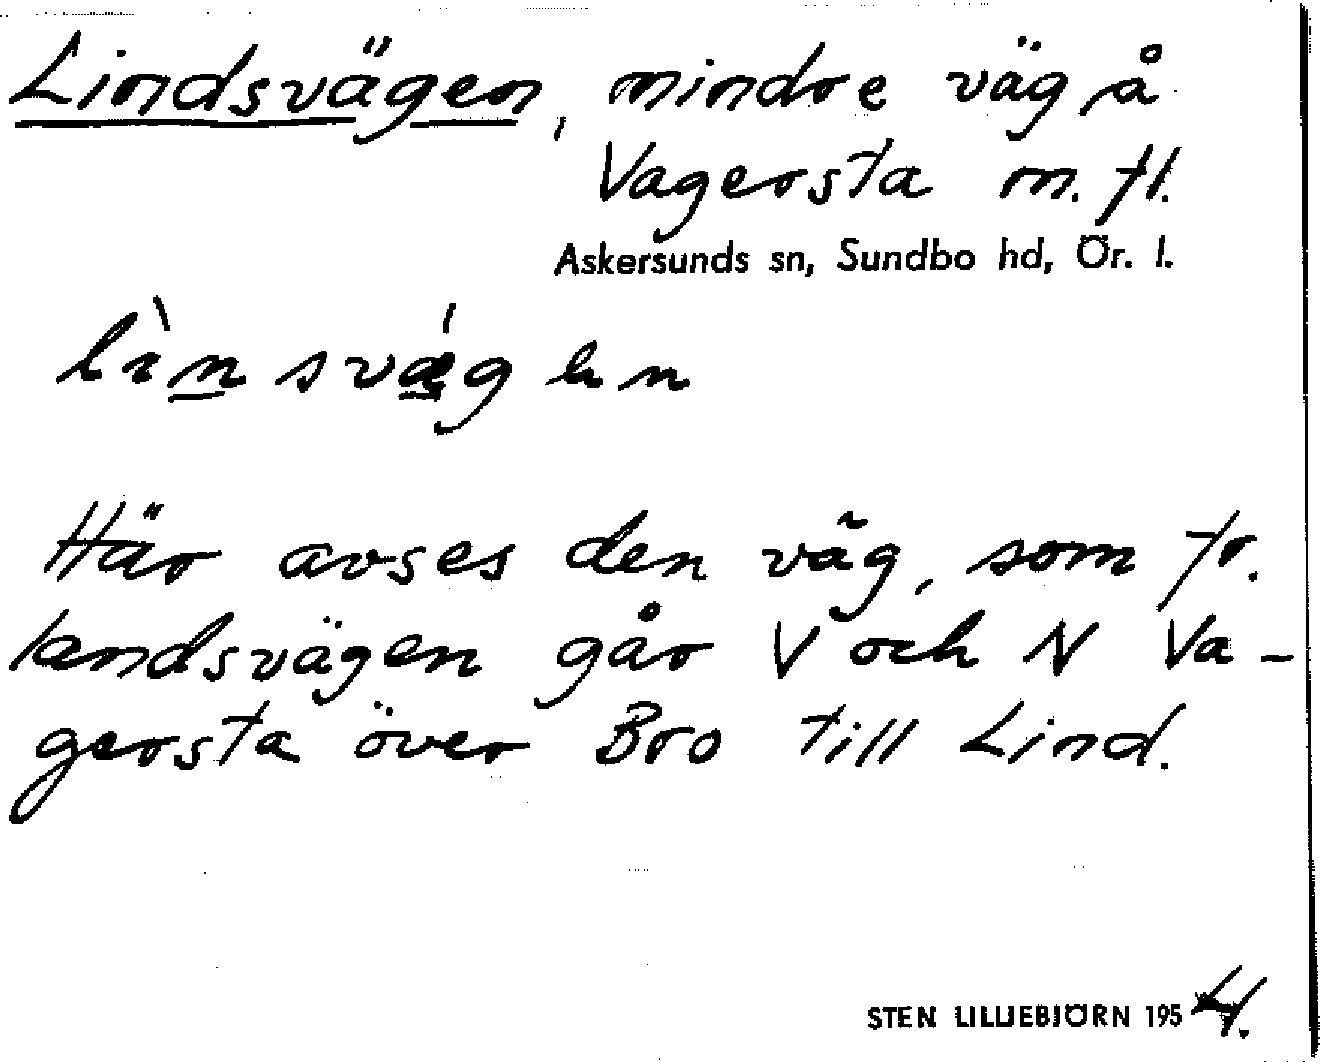 Lindsvägen, mindre väg å
Vagersta m. fl.
Askersunds sn, Sundbo hd, Ör. l.
lìnsvǽgen
Här avses den väg, som fr.
landsvägen går V och N Va-
gersta över Bro till Lind.
STEN LILLIEBJÖRN 1954.